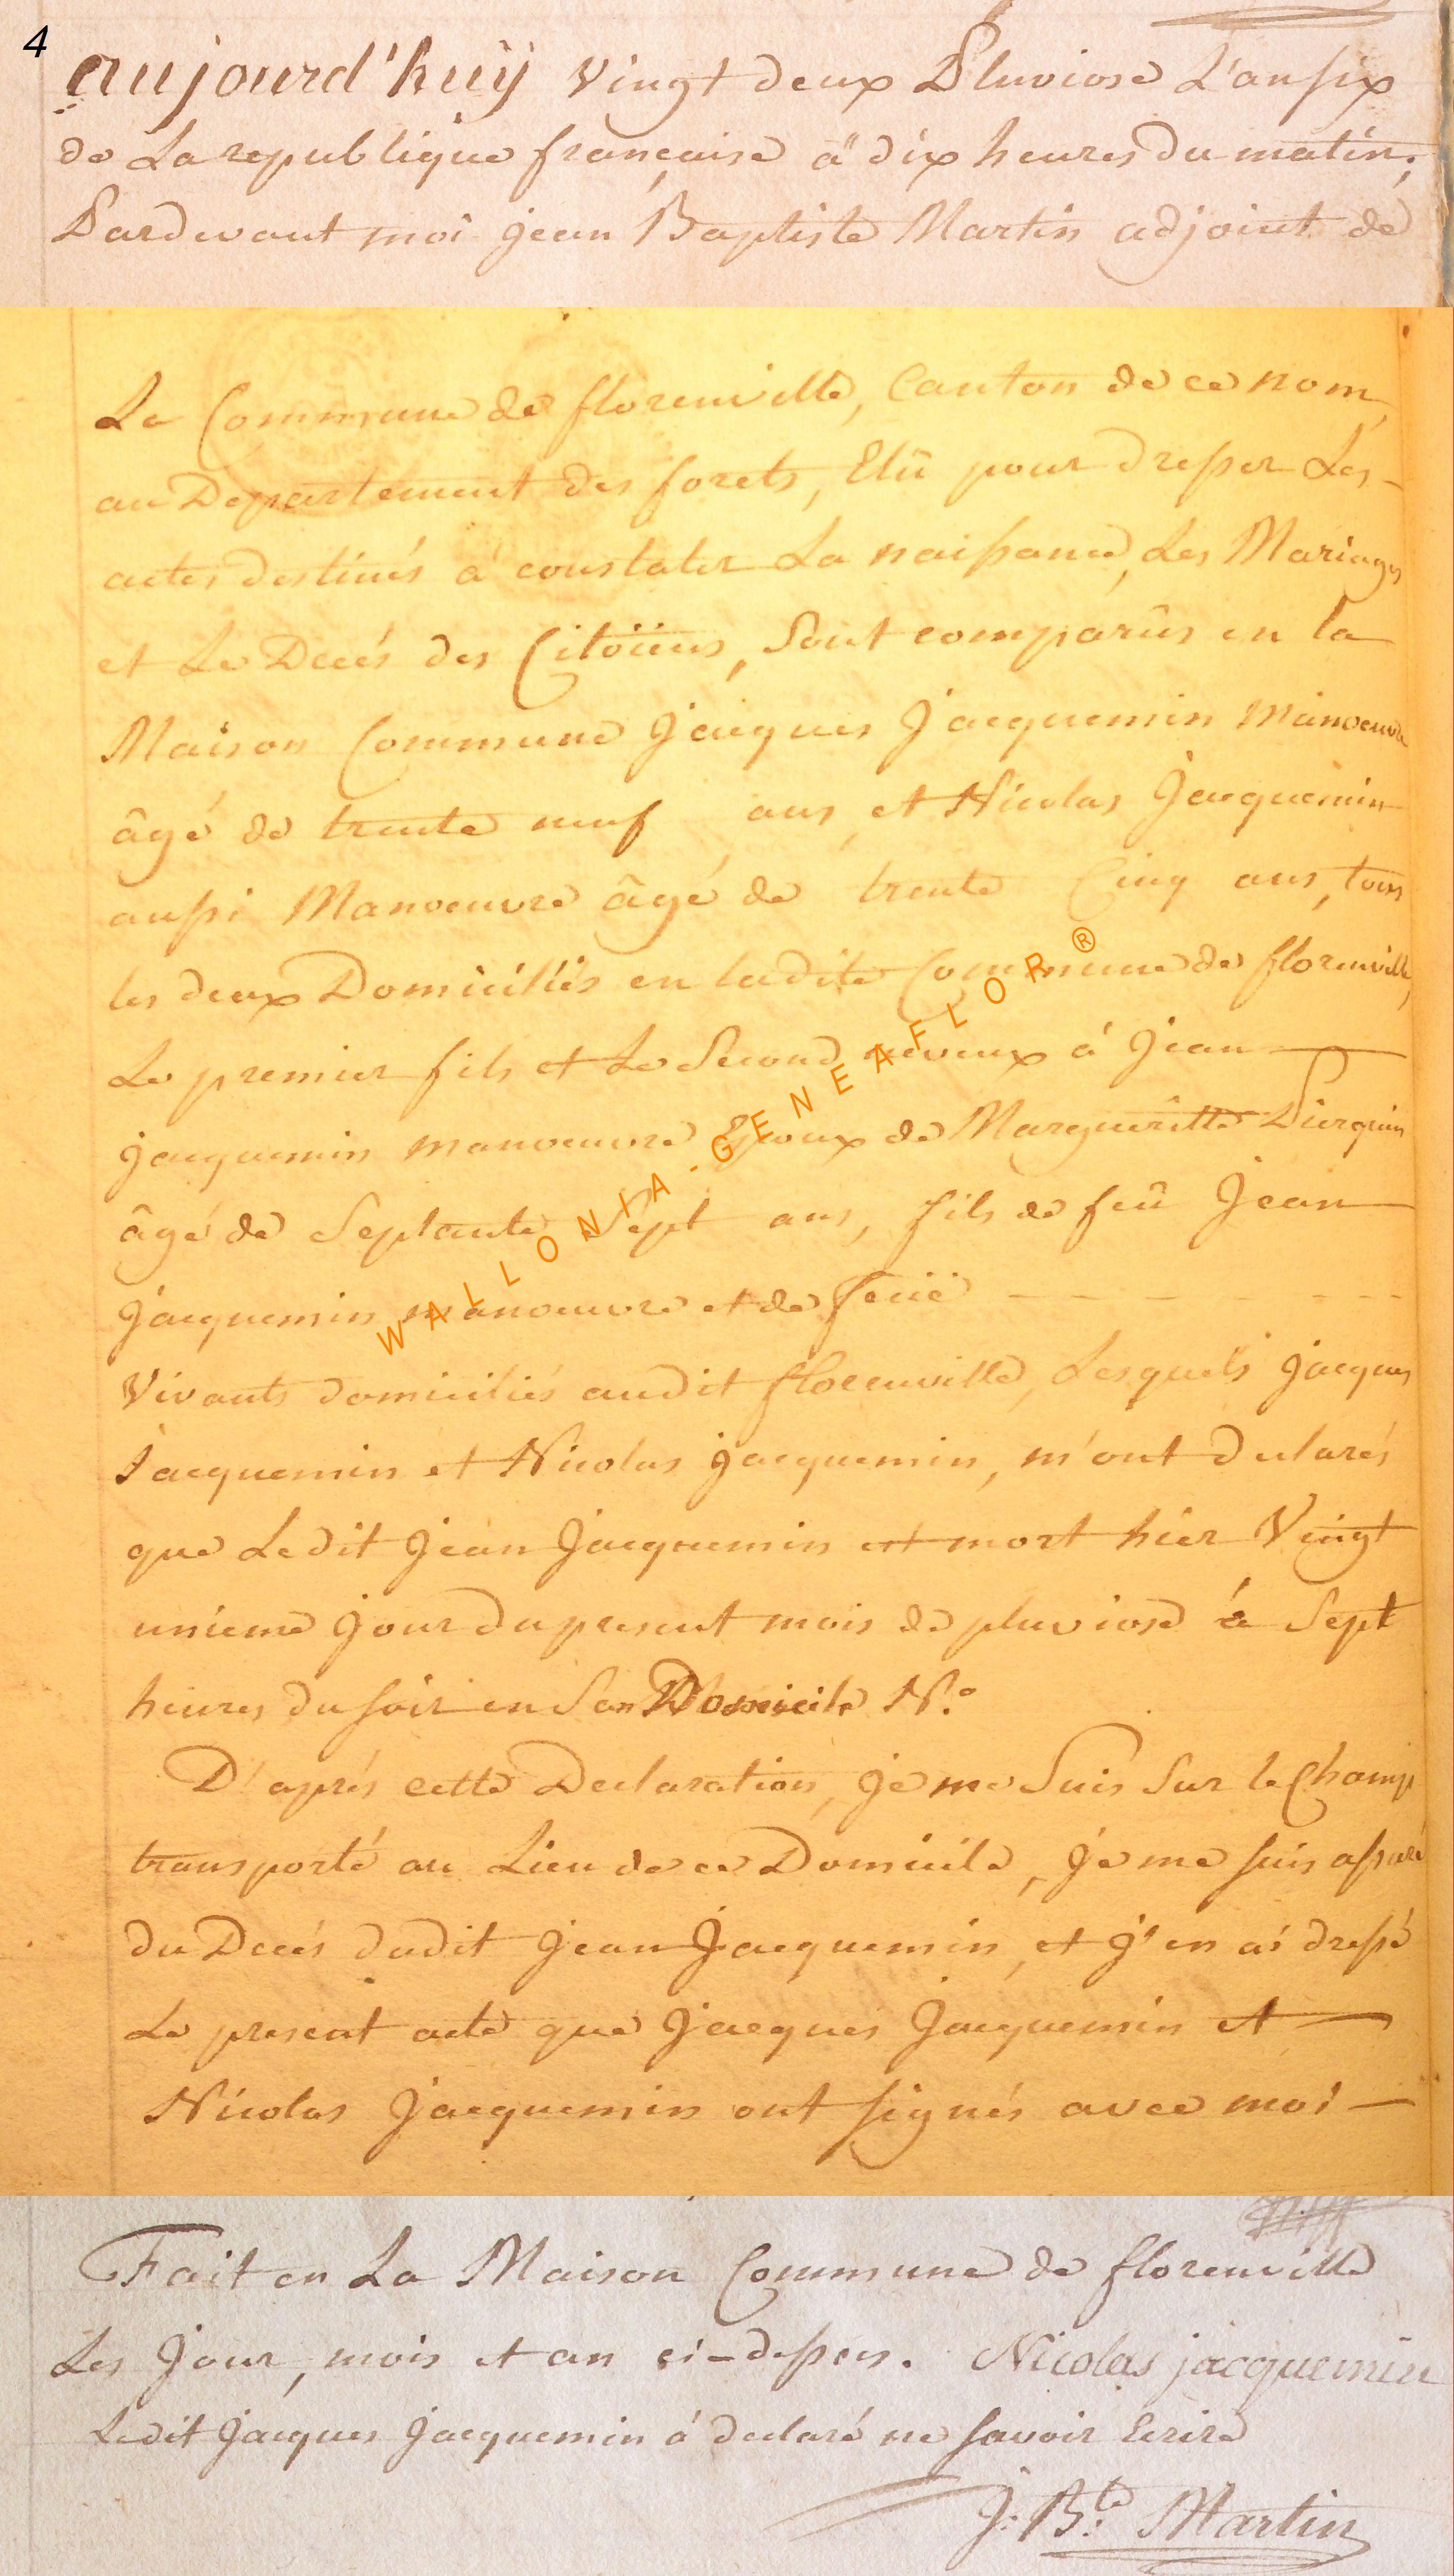 4
aujourd'huÿ vingt deux Pluviose L'an six
de La republique française à dix heures du matin;
Pardevant moi jean Baptiste Martin adjoint de
La Commune de florenville, Canton de ce nom,
au Departement des forets, Elû pour dresser Les
actes destinés à constater La naissance, Les Mariages
et Le Decés des Citoïens, Sont comparûs en la
Maison Commune Jacques Jacquemin Manoeuvre
âgé de trente neuf ans, et Nicolas Jacquemin
aussi Manoeuvre âgé de trente Cinq ans, tous
les deux Domiciliés en ladite Commune de florenville,
Le premier fils et Le Second neveux à Jean
jacquemin manoeuvre Epoux de Margueritte Pierquin
âgé de Septante Sept ans, fils de feû Jean
Jacquemin manoeuvre et de feüe
Vivants domiciliés audit florenville, Lesquels jacques
Jacquemin et Nicolas jacquemin, m'ont declarés
que Ledit Jean Jacquemin est mort hier Vingt
unieme jour du present mois de pluviose à Sept
heures du soir en Son Domicile N.°
D'aprés cette Declaration, je me Suis Sur le Champ
transporté au Lieu de ce Domicile, je me suis assuré
du Decés dudit Jean Jacquemin, et j'en ai dressé
Le present acte que Jacques Jacquemin et
Nicolas Jacquemin ont signés avec moi
Fait en La Maison Commune de florenville
Les Jour, mois et an ci-dessus. Nicolas jacquemin
Ledit Jacques Jacquemin à declaré ne savoir Ecrire
J: B:te Martin
WALLONIA-GENEAFLOR®